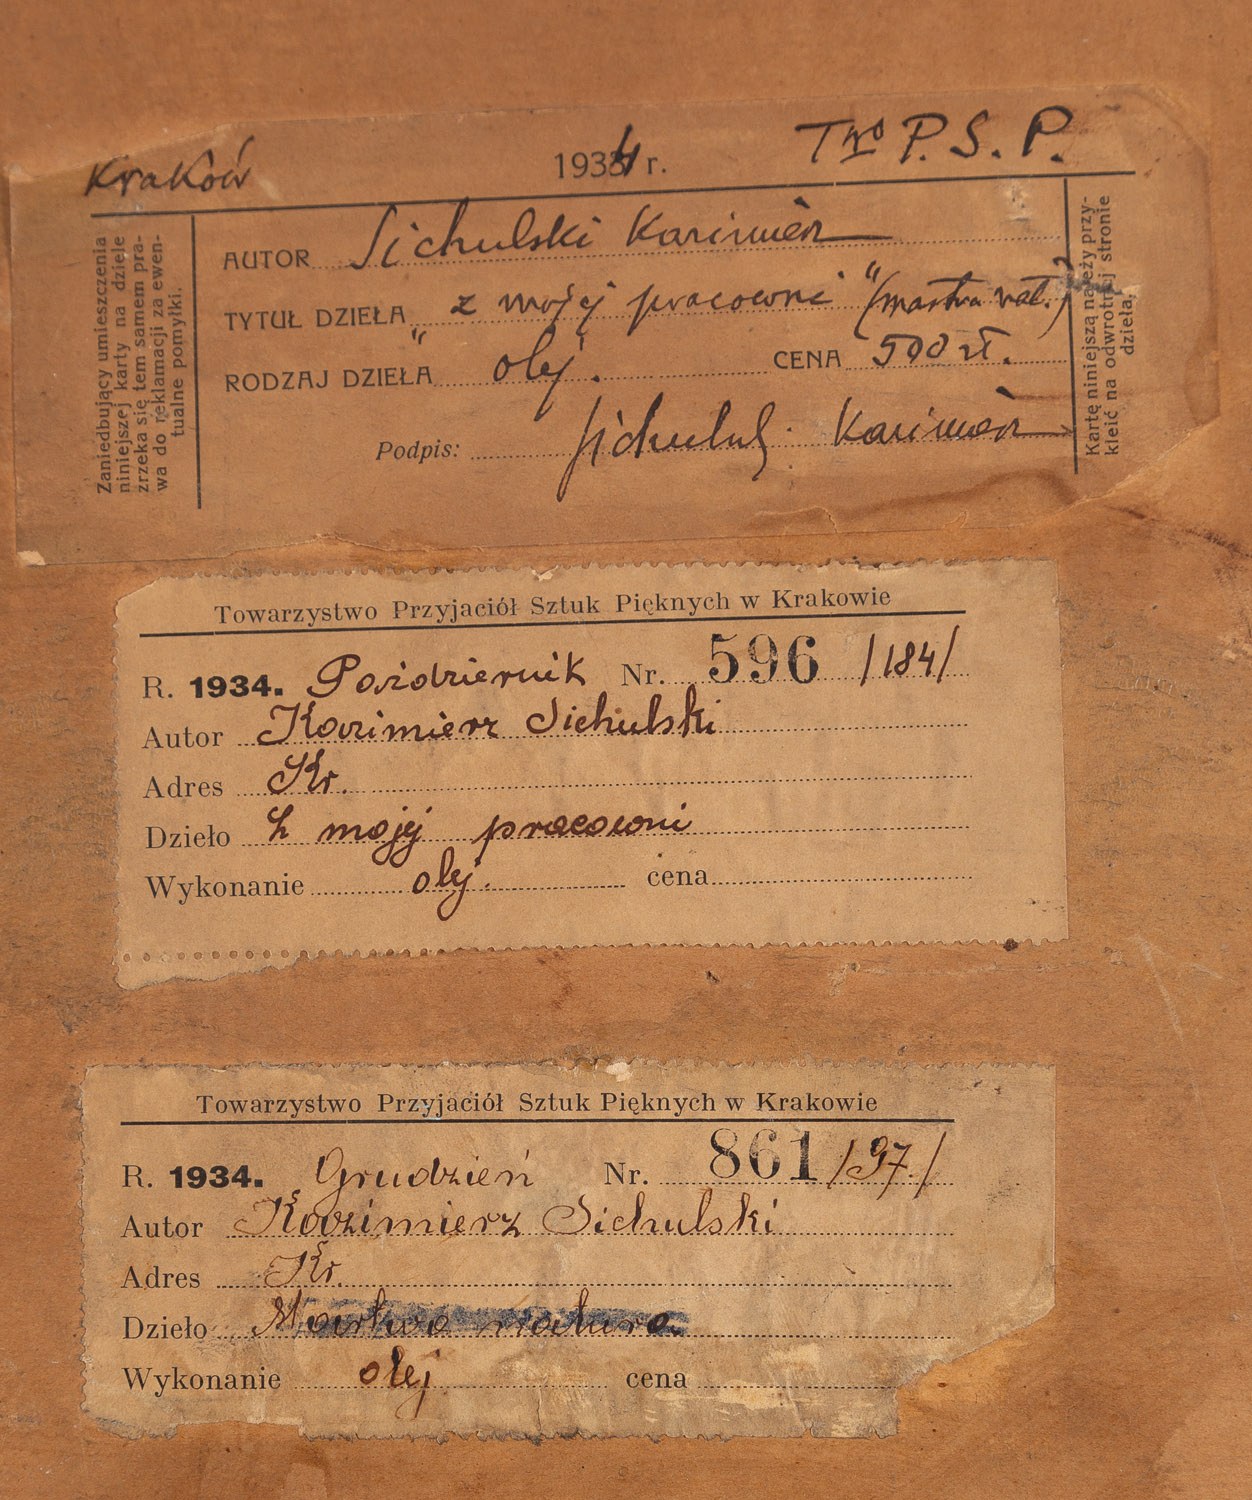 Kraków 1934 r. Two P. S. P.
Zaniedbujący umieszczenia
niniejszej karty na dziele
zrzeka się tem samem pra-
wa do reklamacji za ewen-
tualne pomyłki.
AUTOR Sichulski Kazimierz
TYTUŁ DZIEŁA „z mojej pracowni" (martwa nat.)
RODZAJ DZIEŁA olej. CENA 500 zł.
Podpis: Sichulski Kazimierz
Kartę niniejszą należy przy-
kleić na odwrotnej stronie
dzieła.
Towarzystwo Przyjaciół Sztuk Pięknych w Krakowie
R. 1934. Październik Nr. 596 /184/
Autor Kazimierz Sichulski
Adres Kr.
Dzieło Z mojej pracowni
Wykonanie olej. cena
Towarzystwo Przyjaciół Sztuk Pięknych w Krakowie
R. 1934. Grudzień Nr. 861 /97./
Autor Kazimierz Sichulski
Adres Kr.
Dzieło Martwa natura
Wykonanie olej cena